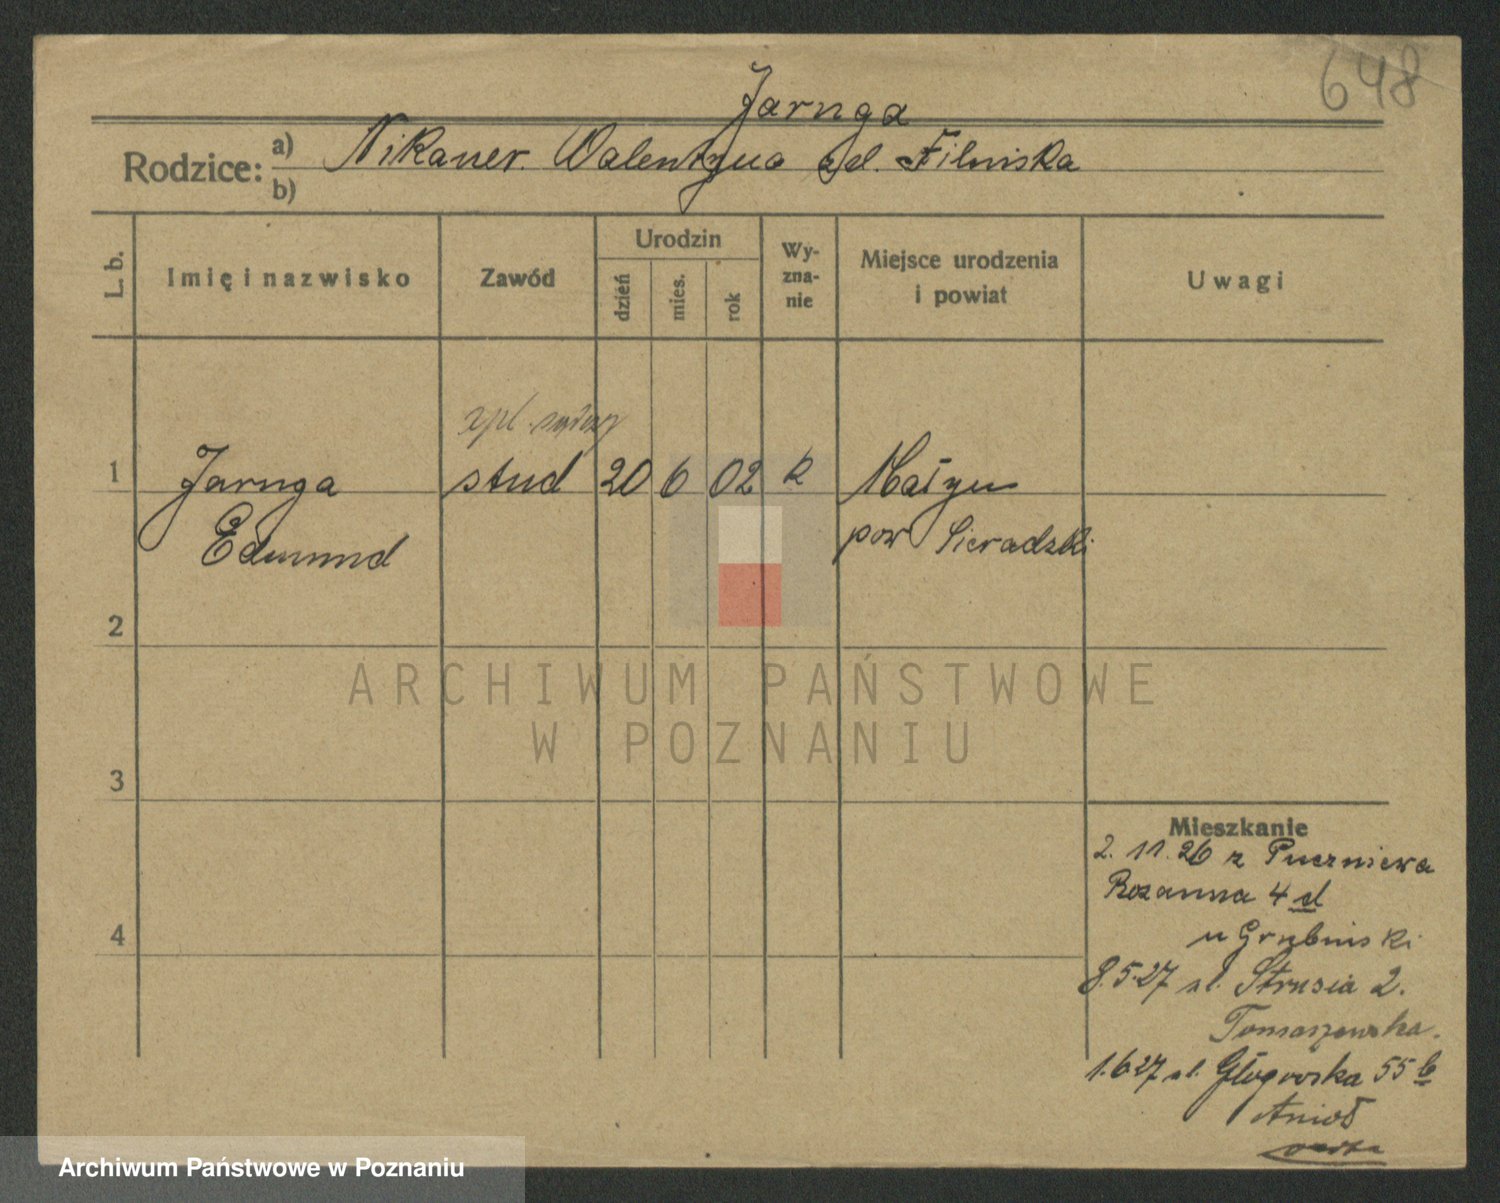 648
Jarnga
Rodzice: a) Nikaner. Walentyna z d. Filniska
b)
L. b.
Imię i nazwisko
Zawód
Urodzin
dzień
mies.
rok
Wy-
zna-
nie
Miejsce urodzenia
i powiat
Uwagi
1 Jarnga stud 20 6 02 k Małyn
Edmund pow Sieradzki
2
3
4
Mieszkanie
2. 11. 26 z Puczniewa
Rozanna 4 d
u Grubinski
8.5.27 ul. Strusia 2.
Tomaszewska.
1.6 27 ul. Głogowska 55 b
Anioł
ARCHIWUM PAŃSTWOWE
W POZNANIU
Archiwum Państwowe w Poznaniu